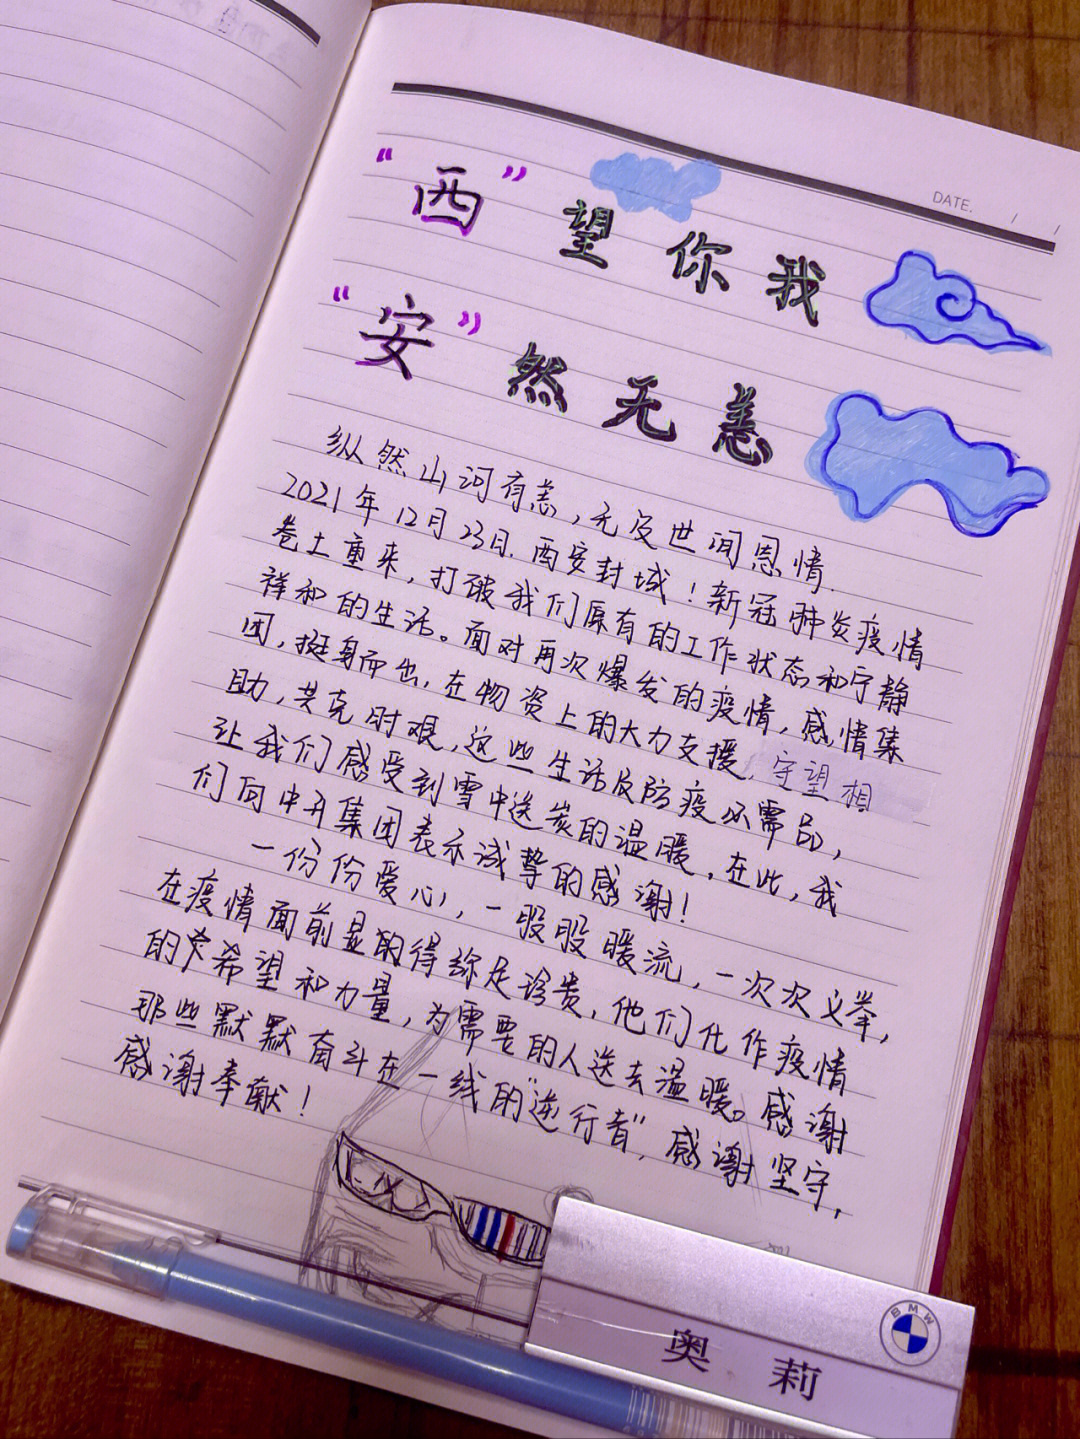 DATE. / /
“西”望你我
“安”然无恙
纵然山河有恙,无及世间恩情.
2021年12月23日.西安封城!新冠肺炎疫情
卷土重来,打破我们原有的工作状态和宁静
祥和的生活。面对再次爆发的疫情,感情集
团,挺身而出,在物资上的大力支援,守望相
助,共克时艰,这些生活及防疫必需品,
让我们感受到雪中送炭的温暖,在此,我
们向中升集团表示诚挚的感谢!
一份份爱心,一股股暖流,一次次义举,
在疫情面前显的得弥足珍贵,他们化作疫情
的希望和力量,为需要的人送去温暖。感谢
那些默默奋斗在一线的“逆行者”,感谢坚守,
感谢奉献!
BMW
奥莉